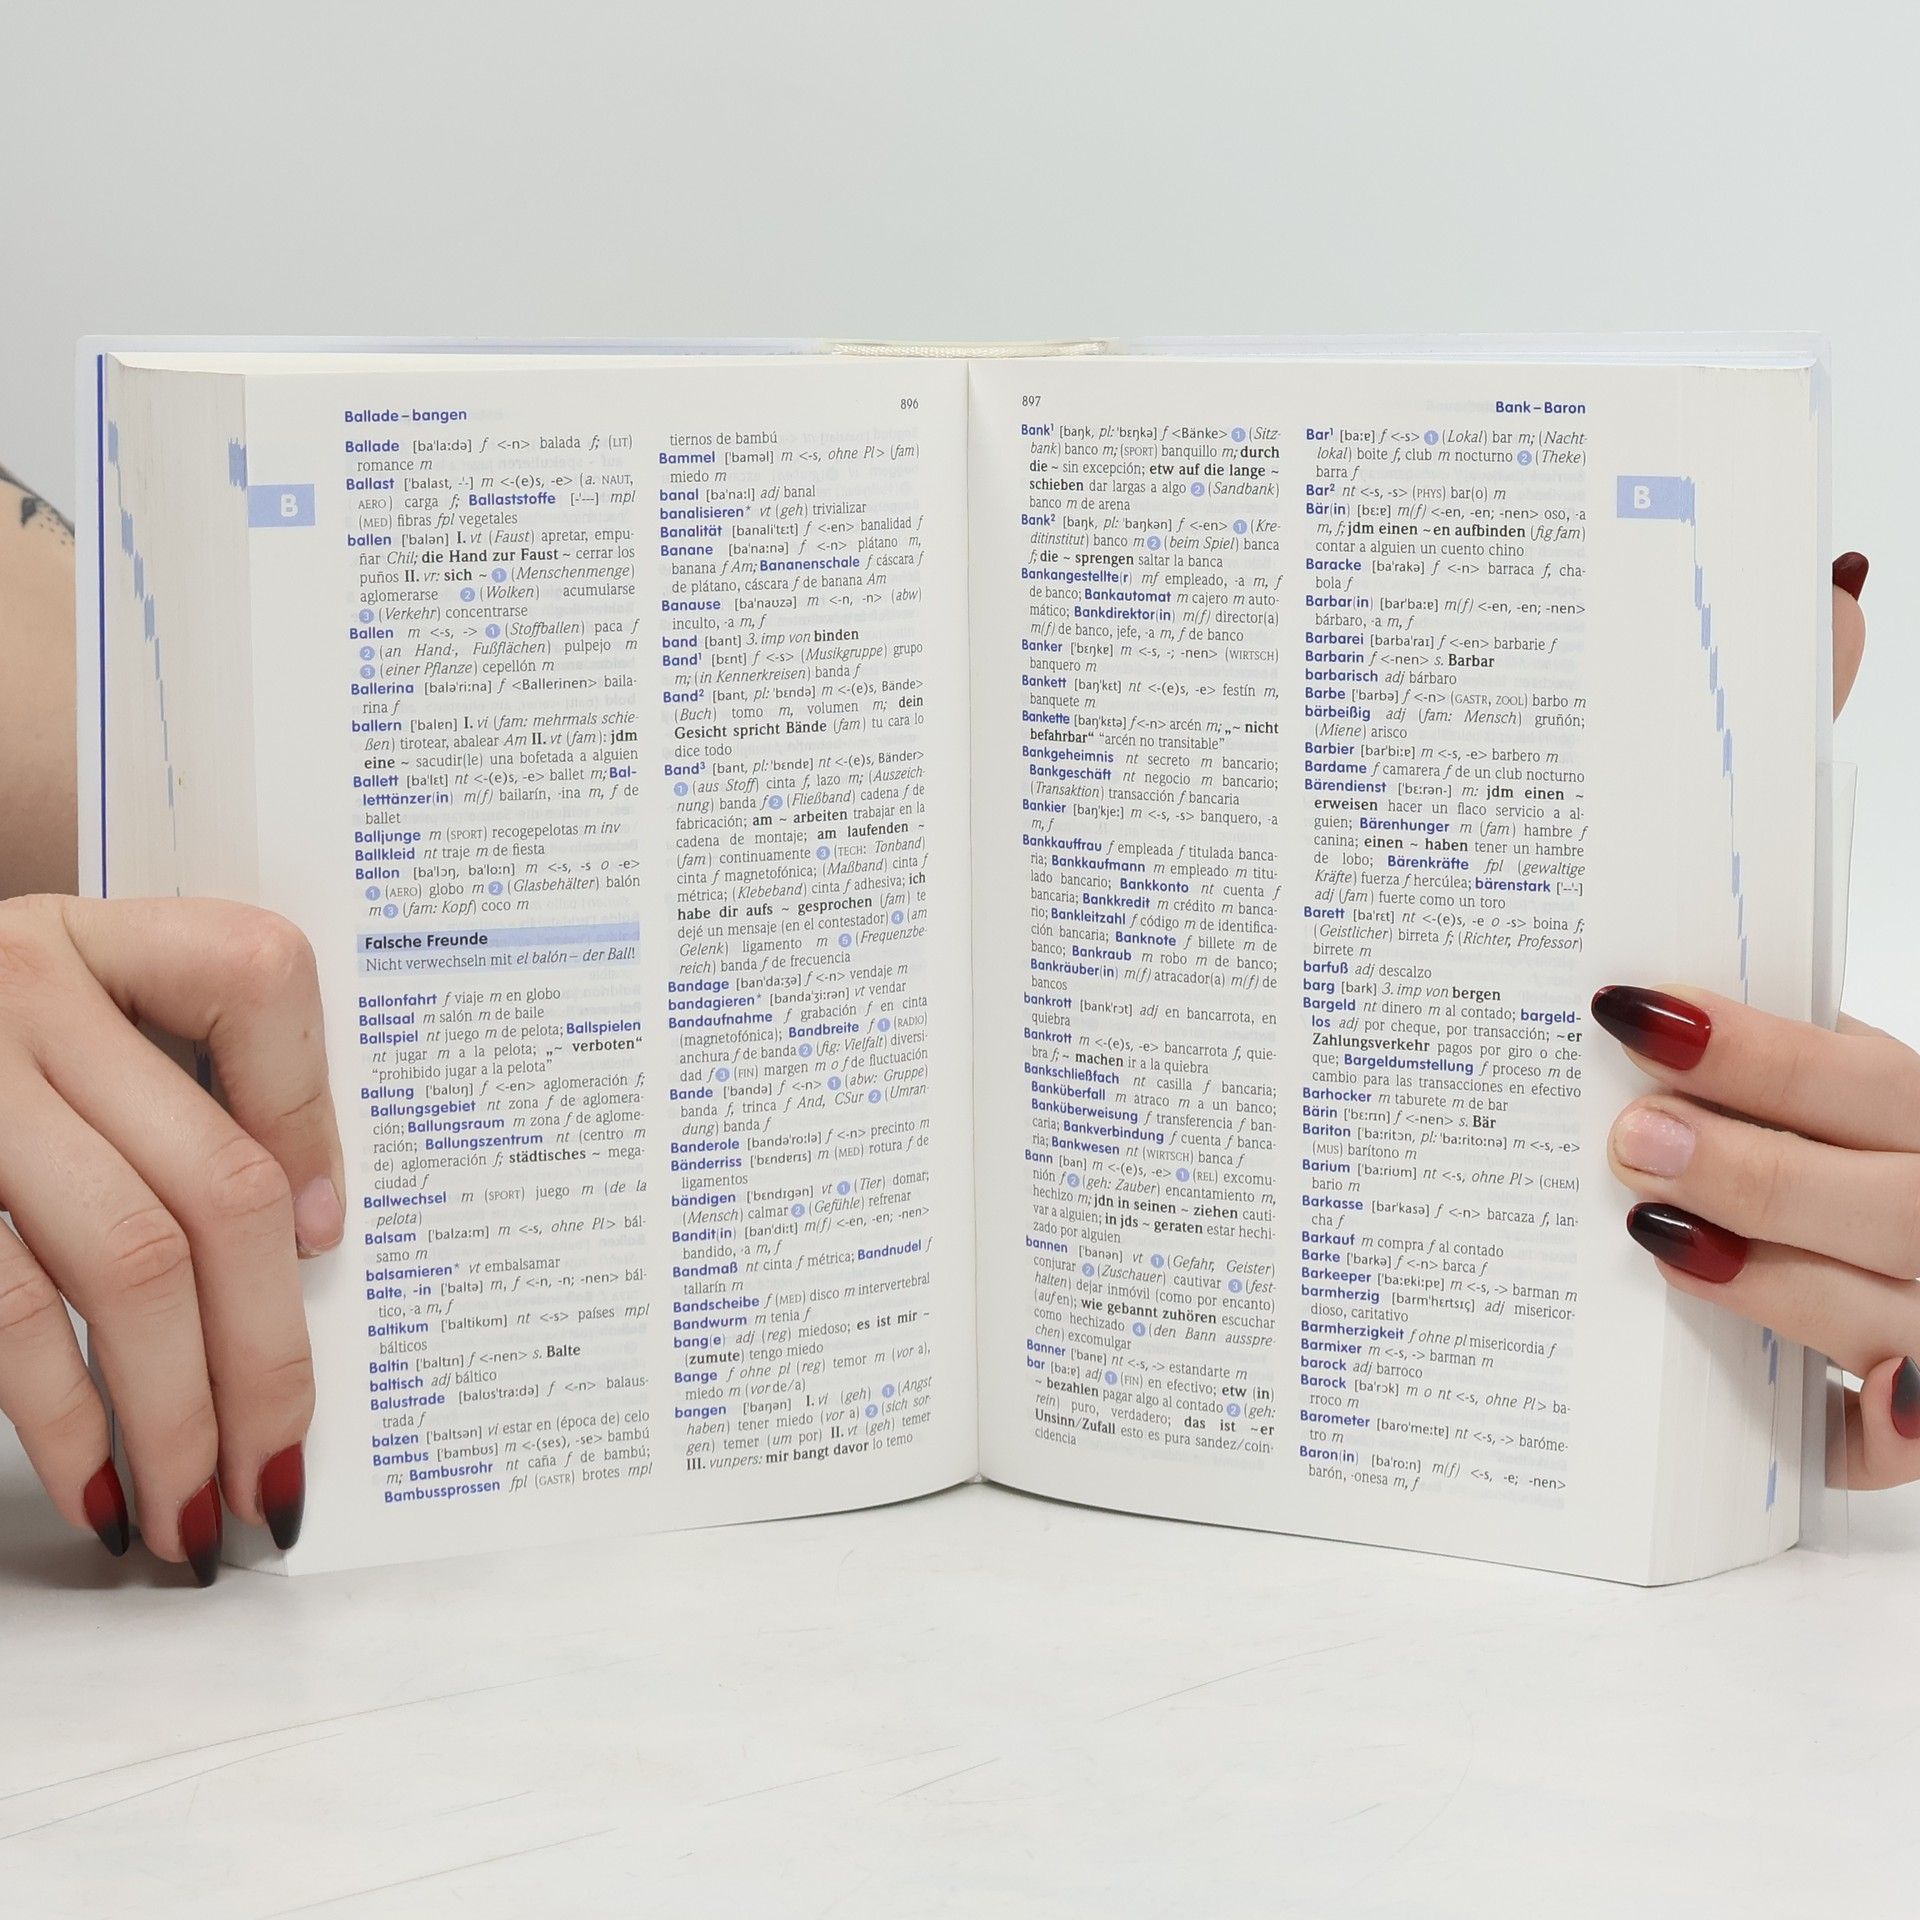 Ballade – bangen
896
B
Ballade [ba'la:də] f <-n> balada f; (LIT)
romance m
Ballast ['balast, -'-] m <-(e)s, -e> (a. NAUT,
AERO) carga f; Ballaststoffe [-'---] mpl
(MED) fibras fpl vegetales
ballen ['balən] I. vt (Faust) apretar, empu-
ñar Chil; die Hand zur Faust ~ cerrar los
puños II. vr: sich ~ 1 (Menschenmenge)
aglomerarse 2 (Wolken) acumularse
3 (Verkehr) concentrarse
Ballen m <-s, -> 1 (Stoffballen) paca f
2 (an Hand-, Fußflächen) pulpejo m
3 (einer Pflanze) cepellón m
Ballerina [balə'ri:na] f <Ballerinen> baila-
rina f
ballern ['balɐn] I. vi (fam: mehrmals schie-
ßen) tirotear, abalear Am II. vt (fam): jdm
eine ~ sacudir(le) una bofetada a alguien
Ballett [ba'lɛt] nt <-(e)s, -e> ballet m; Bal-
letttänzer(in) m(f) bailarín, -ina m, f de
ballet
Balljunge m (SPORT) recogepelotas m inv
Ballkleid nt traje m de fiesta
Ballon [ba'lɔŋ, ba'lo:n] m <-s, -s o -e>
1 (AERO) globo m 2 (Glasbehälter) balón
m 3 (fam: Kopf) coco m
Falsche Freunde
Nicht verwechseln mit el balón – der Ball!
Ballonfahrt f viaje m en globo
Ballsaal m salón m de baile
Ballspiel nt juego m de pelota; Ballspielen
nt jugar m a la pelota; „~ verboten“
“prohibido jugar a la pelota”
Ballung ['balʊŋ] f <-en> aglomeración f;
Ballungsgebiet nt zona f de aglomera-
ción; Ballungsraum m zona f de aglome-
ración; Ballungszentrum nt (centro m
de) aglomeración f; städtisches ~ mega-
ciudad f
Ballwechsel m (SPORT) juego m (de la
pelota)
Balsam ['balza:m] m <-s, ohne Pl> bál-
samo m
balsamieren* vt embalsamar
Balte, -in ['baltə] m, f <-n, -n; -nen> bál-
tico, -a m, f
Baltikum ['baltikʊm] nt <-s> países mpl
bálticos
Baltin ['baltɪn] f <-nen> s. Balte
baltisch adj báltico
Balustrade [balʊs'tra:də] f <-n> balaus-
trada f
balzen ['baltsən] vi estar en (época de) celo
Bambus ['bambʊs] m <-(ses), -se> bambú
m; Bambusrohr nt caña f de bambú;
Bambussprossen fpl (GASTR) brotes mpl
tiernos de bambú
Bammel ['baməl] m <-s, ohne Pl> (fam)
miedo m
banal [ba'na:l] adj banal
banalisieren* vt (geh) trivializar
Banalität [banali'tɛ:t] f <-en> banalidad f
Banane [ba'na:nə] f <-n> plátano m,
banana f Am; Bananenschale f cáscara f
de plátano, cáscara f de banana Am
Banause [ba'nauzə] m <-n, -n> (abw)
inculto, -a m, f
band [bant] 3. imp von binden
Band¹ [bɛnt] f <-s> (Musikgruppe) grupo
m; (in Kennerkreisen) banda f
Band² [bant, pl: 'bɛndə] m <-(e)s, Bände>
(Buch) tomo m, volumen m; dein
Gesicht spricht Bände (fam) tu cara lo
dice todo
Band³ [bant, pl: 'bɛndɐ] nt <-(e)s, Bänder>
1 (aus Stoff) cinta f, lazo m; (Auszeich-
nung) banda f 2 (Fließband) cadena f de
fabricación; am ~ arbeiten trabajar en la
cadena de montaje; am laufenden ~
(fam) continuamente 3 (TECH: Tonband)
cinta f magnetofónica; (Maßband) cinta f
métrica; (Klebeband) cinta f adhesiva; ich
habe dir aufs ~ gesprochen (fam) te
dejé un mensaje (en el contestador) 4 (am
Gelenk) ligamento m 5 (Frequenzbe-
reich) banda f de frecuencia
Bandage [ban'da:ʒə] f <-n> vendaje m
bandagieren* [banda'ʒi:rən] vt vendar
Bandaufnahme f grabación f en cinta
(magnetofónica); Bandbreite f 1 (RADIO)
anchura f de banda 2 (fig: Vielfalt) diversi-
dad f 3 (FIN) margen m o f de fluctuación
Bande ['bandə] f <-n> 1 (abw: Gruppe)
banda f, trinca f And, CSur 2 (Umran-
dung) banda f
Banderole [bandə'ro:lə] f <-n> precinto m
Bänderriss ['bɛndɐrɪs] m (MED) rotura f de
ligamentos
bändigen ['bɛndɪgən] vt 1 (Tier) domar;
(Mensch) calmar 2 (Gefühle) refrenar
Bandit(in) [ban'di:t] m(f) <-en, -en; -nen>
bandido, -a m, f
Bandmaß nt cinta f métrica; Bandnudel f
tallarín m
Bandscheibe f (MED) disco m intervertebral
Bandwurm m tenia f
bang(e) adj (reg) miedoso; es ist mir ~
(zumute) tengo miedo
Bange f ohne pl (reg) temor m (vor a),
miedo m (vor de/a)
bangen ['baŋən] I. vi (geh) 1 (Angst
haben) tener miedo (vor a) 2 (sich sor-
gen) temer (um por) II. vt (geh) temer
III. vunpers: mir bangt davor lo temo
897
Bank – Baron
B
Bank¹ [baŋk, pl: 'bɛŋkə] f <Bänke> 1 (Sitz-
bank) banco m; (SPORT) banquillo m; durch
die ~ sin excepción; etw auf die lange ~
schieben dar largas a algo 2 (Sandbank)
banco m de arena
Bank² [baŋk, pl: 'baŋkən] f <-en> 1 (Kre-
ditinstitut) banco m 2 (beim Spiel) banca
f; die ~ sprengen saltar la banca
Bankangestellte(r) mf empleado, -a m, f
de banco; Bankautomat m cajero m auto-
mático; Bankdirektor(in) m(f) director(a)
m(f) de banco, jefe, -a m, f de banco
Banker ['bɛŋkɐ] m <-s, -; -nen> (WIRTSCH)
banquero m
Bankett [baŋ'kɛt] nt <-(e)s, -e> festín m,
banquete m
Bankette [baŋ'kɛtə] f <-n> arcén m; „~ nicht
befahrbar“ “arcén no transitable”
Bankgeheimnis nt secreto m bancario;
Bankgeschäft nt negocio m bancario;
(Transaktion) transacción f bancaria
Bankier [baŋ'kje:] m <-s, -s> banquero, -a
m, f
Bankkauffrau f empleada f titulada banca-
ria; Bankkaufmann m empleado m titu-
lado bancario; Bankkonto nt cuenta f
bancaria; Bankkredit m crédito m banca-
rio; Bankleitzahl f código m de identifica-
ción bancaria; Banknote f billete m de
banco; Bankraub m robo m de banco;
Bankräuber(in) m(f) atracador(a) m(f) de
bancos
bankrott [bank'rɔt] adj en bancarrota, en
quiebra
Bankrott m <-(e)s, -e> bancarrota f, quie-
bra f; ~ machen ir a la quiebra
Bankschließfach nt casilla f bancaria;
Banküberfall m atraco m a un banco;
Banküberweisung f transferencia f ban-
caria; Bankverbindung f cuenta f banca-
ria; Bankwesen nt (WIRTSCH) banca f
Bann [ban] m <-(e)s, -e> 1 (REL) excomu-
nión f 2 (geh: Zauber) encantamiento m,
hechizo m; jdn in seinen ~ ziehen cauti-
var a alguien; in jds ~ geraten estar hechi-
zado por alguien
bannen ['banən] vt 1 (Gefahr, Geister)
conjurar 2 (Zuschauer) cautivar 3 (fest-
halten) dejar inmóvil (como por encanto)
(auf en); wie gebannt zuhören escuchar
como hechizado 4 (den Bann ausspre-
chen) excomulgar
Banner ['banɐ] nt <-s, -> estandarte m
bar [ba:ɐ] adj 1 (FIN) en efectivo; etw (in)
~ bezahlen pagar algo al contado 2 (geh:
rein) puro, verdadero; das ist ~er
Unsinn/Zufall esto es pura sandez/coin-
cidencia
Bar¹ [ba:ɐ] f <-s> 1 (Lokal) bar m; (Nacht-
lokal) boite f, club m nocturno 2 (Theke)
barra f
Bar² nt <-s, -s> (PHYS) bar(o) m
Bär(in) [bɛ:ɐ] m(f) <-en, -en; -nen> oso, -a
m, f; jdm einen ~en aufbinden (fig fam)
contar a alguien un cuento chino
Baracke [ba'rakə] f <-n> barraca f, cha-
bola f
Barbar(in) [bar'ba:ɐ] m(f) <-en, -en; -nen>
bárbaro, -a m, f
Barbarei [barba'raɪ] f <-en> barbarie f
Barbarin f <-nen> s. Barbar
barbarisch adj bárbaro
Barbe ['barbə] f <-n> (GASTR, ZOOL) barbo m
bärbeißig adj (fam: Mensch) gruñón;
(Miene) arisco
Barbier [bar'bi:ɐ] m <-s, -e> barbero m
Bardame f camarera f de un club nocturno
Bärendienst ['bɛ:rən-] m: jdm einen ~
erweisen hacer un flaco servicio a al-
guien; Bärenhunger m (fam) hambre f
canina; einen ~ haben tener un hambre
de lobo; Bärenkräfte fpl (gewaltige
Kräfte) fuerza f hercúlea; bärenstark ['--'-]
adj (fam) fuerte como un toro
Barett [ba'rɛt] nt <-(e)s, -e o -s> boina f;
(Geistlicher) birreta f; (Richter, Professor)
birrete m
barfuß adj descalzo
barg [bark] 3. imp von bergen
Bargeld nt dinero m al contado; bargeld-
los adj por cheque, por transacción; ~er
Zahlungsverkehr pagos por giro o che-
que; Bargeldumstellung f proceso m de
cambio para las transacciones en efectivo
Barhocker m taburete m de bar
Bärin ['bɛ:rɪn] f <-nen> s. Bär
Bariton ['ba:ritɔn, pl: 'ba:rito:nə] m <-s, -e>
(MUS) barítono m
Barium ['ba:riʊm] nt <-s, ohne Pl> (CHEM)
bario m
Barkasse [bar'kasə] f <-n> barcaza f, lan-
cha f
Barkauf m compra f al contado
Barke ['barkə] f <-n> barca f
Barkeeper ['ba:ɐki:pɐ] m <-s, -> barman m
barmherzig [barm'hɛrtsɪç] adj misericor-
dioso, caritativo
Barmherzigkeit f ohne pl misericordia f
Barmixer m <-s, -> barman m
barock adj barroco
Barock [ba'rɔk] m o nt <-s, ohne Pl> ba-
rroco m
Barometer [baro'me:tɐ] nt <-s, -> baróme-
tro m
Baron(in) [ba'ro:n] m(f) <-s, -e; -nen>
barón, -onesa m, f